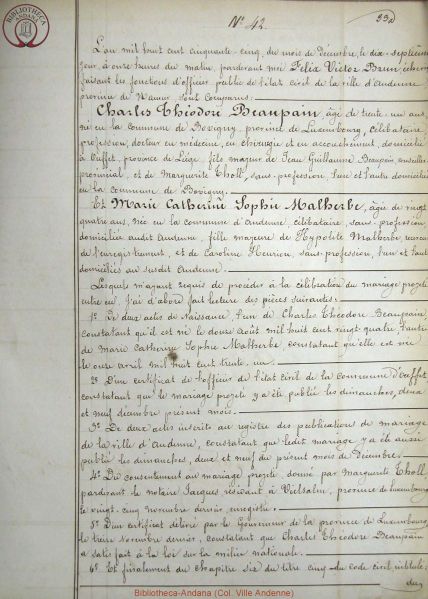 BIBLIOTHECA
ANDANA
N° 42.
L'an mil huit cent cinquante cinq, du mois de Décembre, le dix-septième
jour, à onze heures du matin, pardevant moi Félix Victor Brun, échevin
faisant les fonctions d'officier public de l'état civil de la ville d'Andenne,
province de Namur, sont comparus
Charles Théodore Beaupain, âgé de trente-un ans,
né en la commune de Bovigny, province de Luxembourg, célibataire,
profession, docteur en médecine, en chirurgie et en accouchement, domicilié
à Ouffet, province de Liége, fils majeur de Jean Guillaume Beaupain, conseiller
provincial, et de Marguerite Tholl, sans profession, l'un et l'autre domiciliés
en la commune de Bovigny.
Et Marie Catherine Sophie Malherbe, âgée de vingt
quatre ans, née en la commune d'Andenne, célibataire, sans profession,
domiciliée audit Andenne, fille majeure de Hypolite Malherbe, receveur
de l'enregistrement, et de Caroline Henrion, sans profession, l'un et l'autre
domiciliés au susdit Andenne.
Lesquels m'ayant requis de procéder à la célébration du mariage projeté
entre eux, j'ai d'abord fait lecture des pièces suivantes:
1° De deux actes de Naissance, l'un de Charles Théodore Beaupain,
constatant qu'il est né le douze août mil huit cent vingt quatre, l'autre
de Marie Catherine Sophie Malherbe, constatant qu'elle est née
le onze avril mil huit cent trente-un.
2° D'un certificat de l'officier de l'état civil de la commune d'Ouffet
constatant que le mariage projeté y a été publié les dimanches, deux
et neuf décembre présent mois.
3° De deux actes inscrits au registre des publications de mariage
de la ville d'Andenne, constatant que ledit mariage y a été aussi
publié les dimanches, deux et neuf du présent mois de Décembre.
4° Du consentement au mariage projeté, donné par Marguerite Tholl
pardevant le notaire Jacques résidant à Vielsalm, province de Luxembourg
le vingt-cinq novembre dernier, enregistré.
5° D'un certificat délivré par le Gouverneur de la province de Luxembourg,
le treize Novembre dernier, constatant que Charles Théodore Beaupain
a satisfait à la loi sur la milice nationale.
6° Et finalement du chapitre six du titre cinq du code civil, intitulé,
du
Bibliotheca-Andana (Col. Ville Andenne)